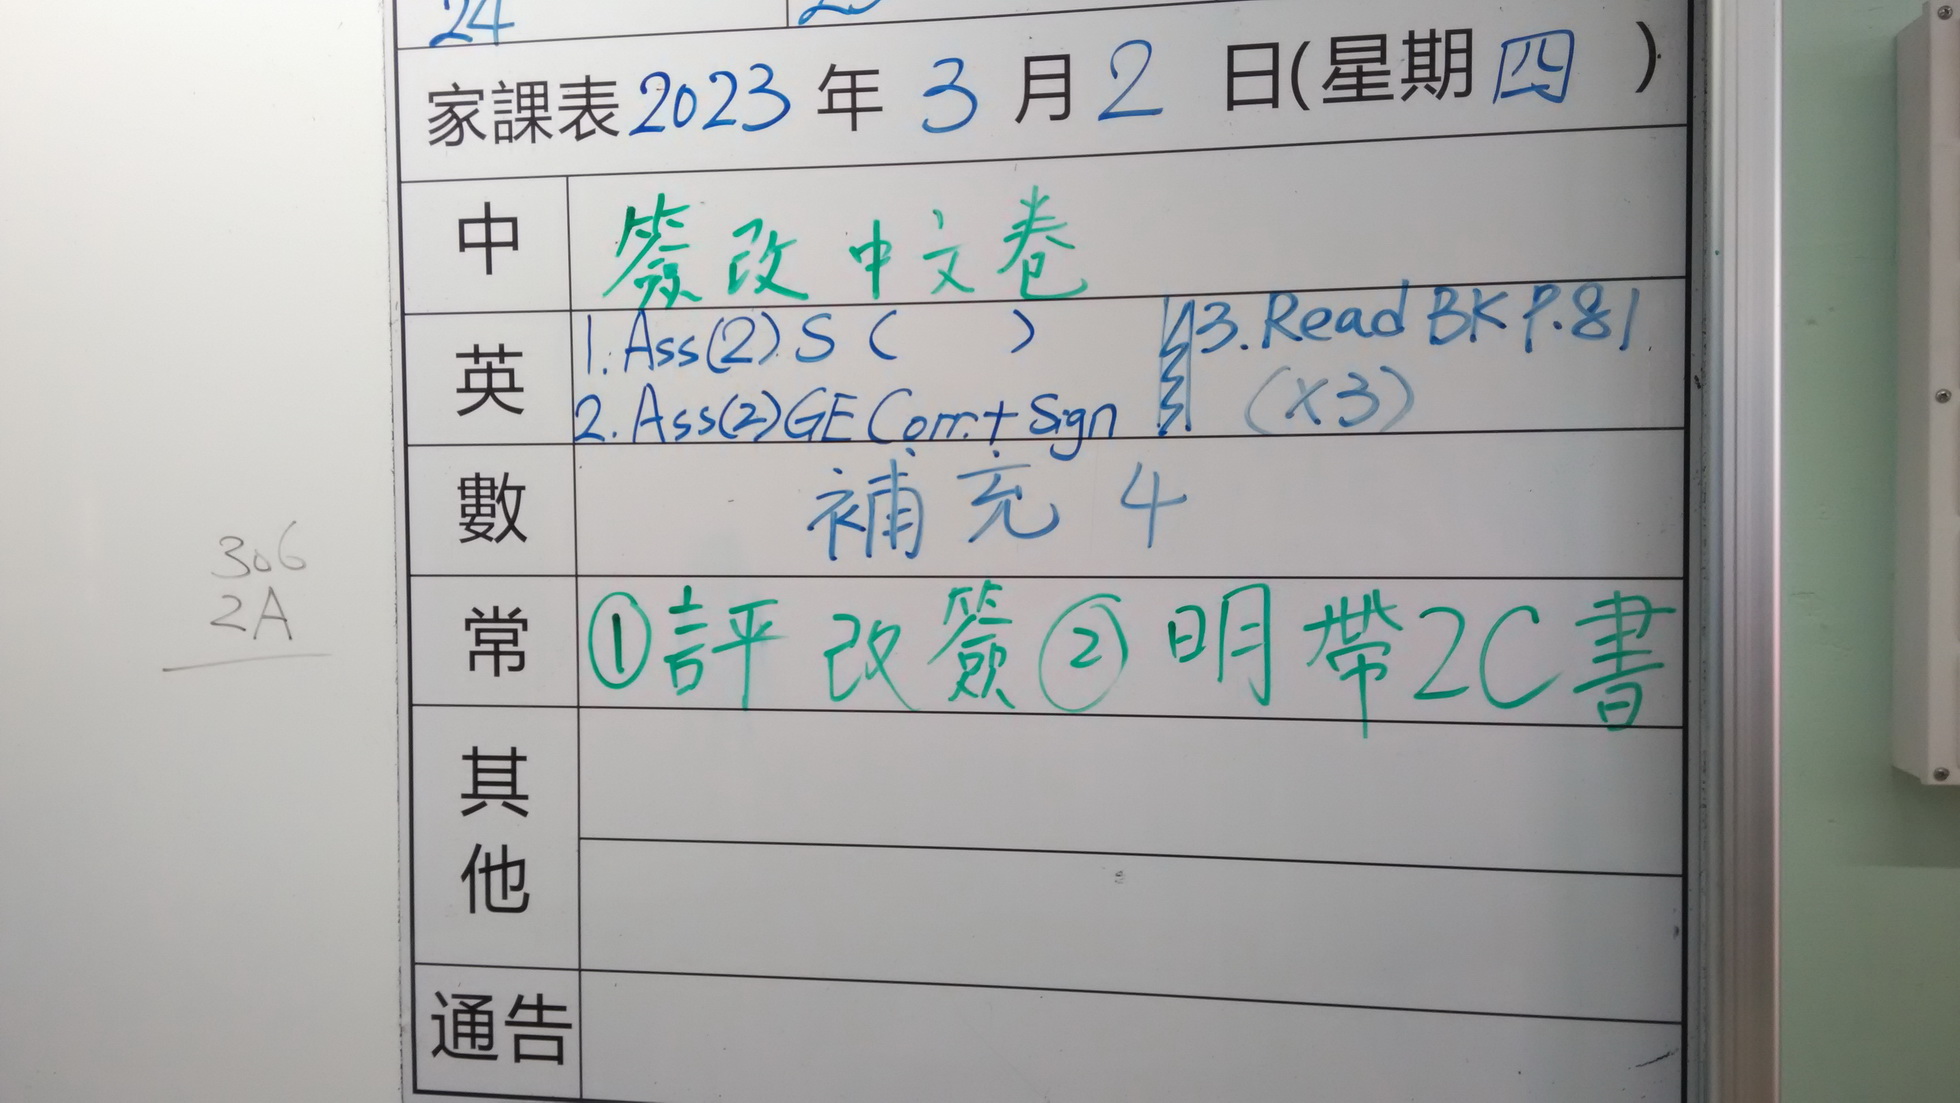 24
家課表2023年3月2日(星期四)
中 簽改中文卷
英 1. Ass(2) S ( )
2. Ass(2) GE Corr. + Sign
3. Read BK P.81
(x3)
數 補充4
常 ①評改簽②明帶2C書
306
2A
其他
通告